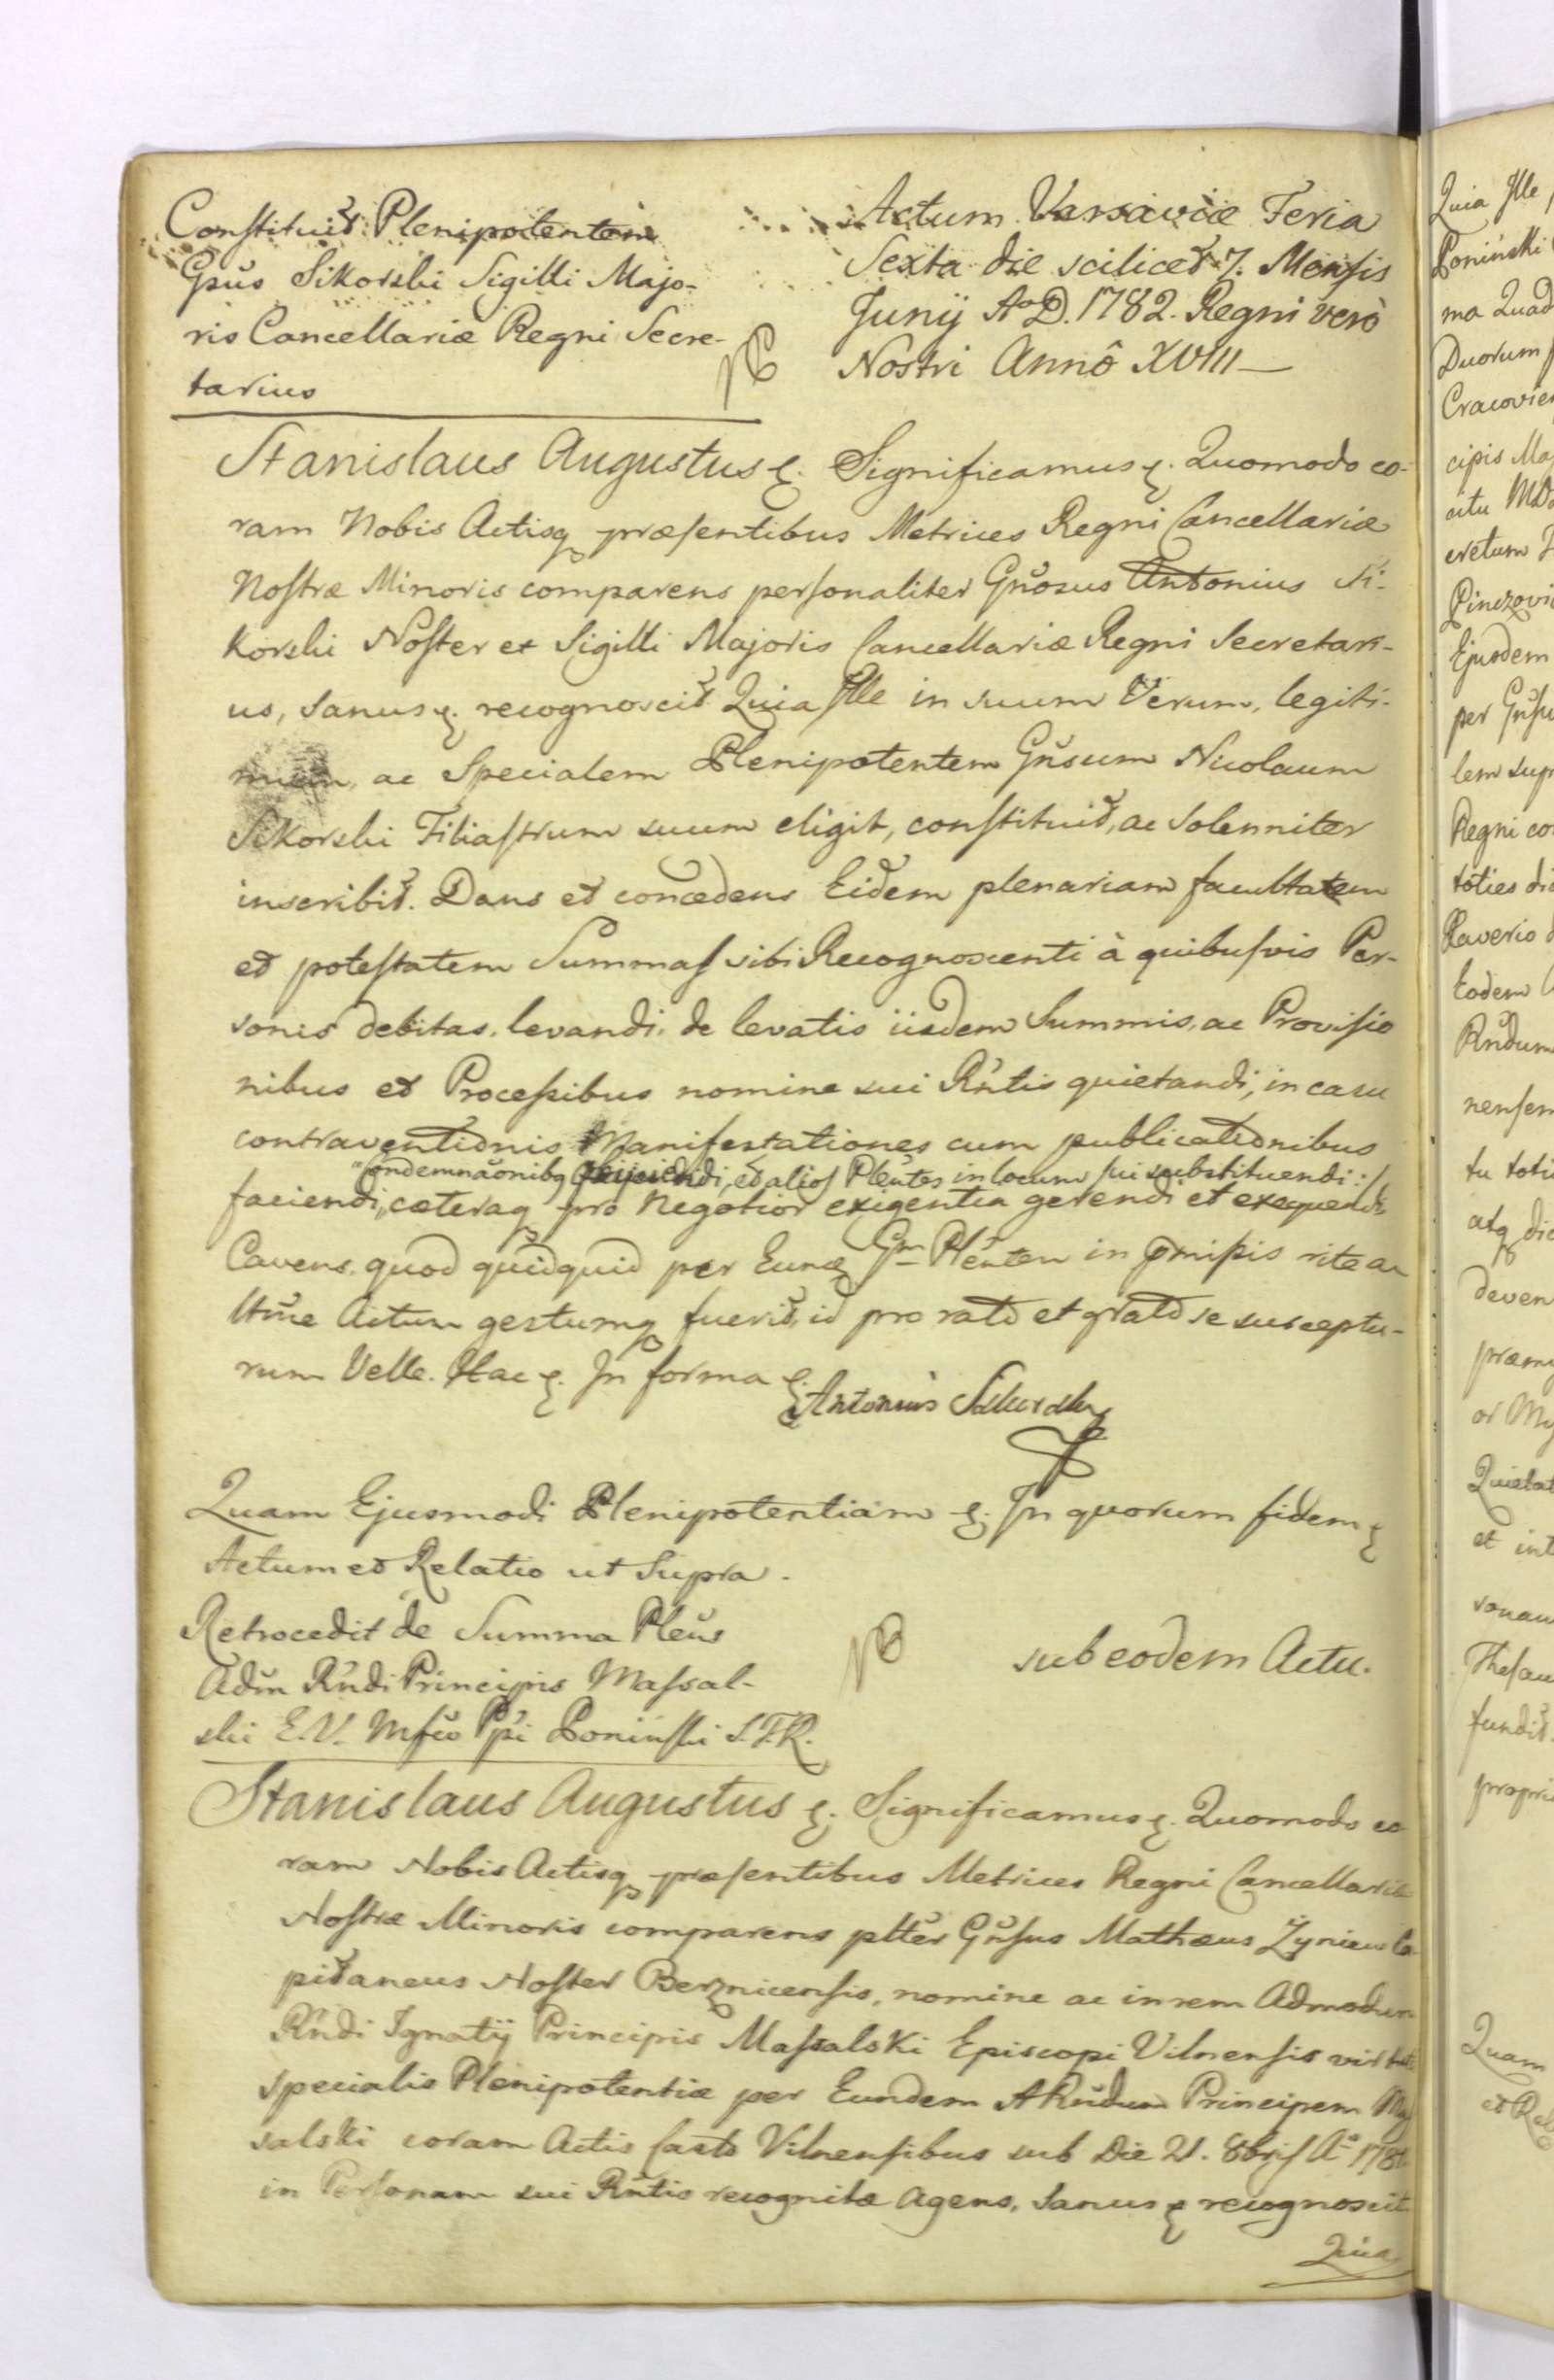 Constituit Plenipotentem
Gnsus Sikorski Sigilli Majo-
ris Cancellariæ Regni Secre-
tarius
Actum Varsaviæ Feria
Sexta die scilicet 7. Mensis
Junij A°D. 1782. Regni verò
Nostri Annô XVIII—
Stanislaus Augustus &. Significamus &. Quomodo co-
ram Nobis Actisq præsentibus Metrices Regni Cancellariæ
Nostræ Minoris comparens personaliter Gnosus Antonius Si-
korski Noster et Sigilli Majoris Cancellariæ Regni Secretari-
us, Sanus &. recognoscit Quia Ille in suum Verum, legiti-
mum, ac Specialem Plenipotentem Gnsum Nicolaum
Sikorski Filiastrum suum eligit, constituit, ac Solenniter
inscribit. Dans et concedens Eidem plenariam facultatem
et potestatem Summas sibi Recognoscenti à quibusvis Per-
sonis debitas, levandi, de levatis iisdem Summis, ac Provisio
nibus et Processibus nomine sui Rntis quietandi, in casu
contraventionis Manifestationes cum publicationibus
Condemnaonibq et alios Plentes in locum sui substituendi :/
faciendi, cæteraq pro Negotior exigentia gerendi et exequendi,
Cavens, quod quidquid per Eunq Gm Plenten in præmissis rite ac
ltme Actum gestumq fuerit, id pro rato et grato se susceptu-
rum Velle. Hac &. In forma &.
Antonius Sikorski
Quam Ejusmodi Plenipotentiam &. In quorum fidem &
Actum et Relatio ut Supra.
Retrocedit de Summa Plens
Adm Rndi Principis Massal-
ski E.V. Mfco Ppi Poninski S.T.R.
sub eodem Actu.
Stanislaus Augustus &. Significamus &. Quomodo co
ram Nobis Actisq præsentibus Metrices Regni Cancellariæ
Nostræ Minoris comparens plter Gnsus Mathæus Zyniew Ca-
pitaneus Noster Berznicensis, nomine ac in rem Admodum
Rndi Ignatij Principis Massalski Episcopi Vilnensis virtute
specialis Plenipotentiæ per Eundem ARndum Principem Mas
salski coram Actis Casts Vilnensibus sub Die 21. 8bris A° 178
in Personam sui Rntis recognitæ Agens, Sanus & recognoscit
Quia
Quia Ille
Poninski
ma Quad
Duorum
Cracovien
cipis Ma
actu
cretum
Pinczovi
Ejusdem
per Gnsu
lem sup
Regni co
toties di
Xaverio
Eodem
Rndum
nensem
tu toti
atq die
deven
præm
or My
Quietat
et int
sonam
Thesau
fundit
propri
Quam
et Rel